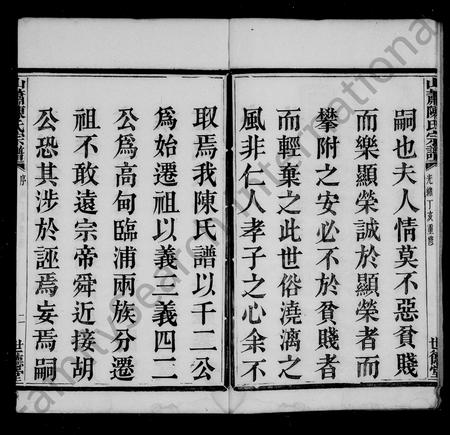 山蕭陳氏宗譜
光緒丁亥重修
世德堂
嗣也夫人情莫不惡貧賤
而樂顯榮誠於顯榮者而
攀附之安必不於貧賤者
而輕棄之此世俗澆漓之
風非仁人孝子之心余不
取焉我陳氏譜以千二公
為始遷祖以義三義四二
公為高甸臨浦兩族分遷
祖不敢遠宗帝舜近接胡
公恐其涉於誣焉妄焉嗣
山蕭陳氏宗譜
序
二
世德堂
FamilySearch International